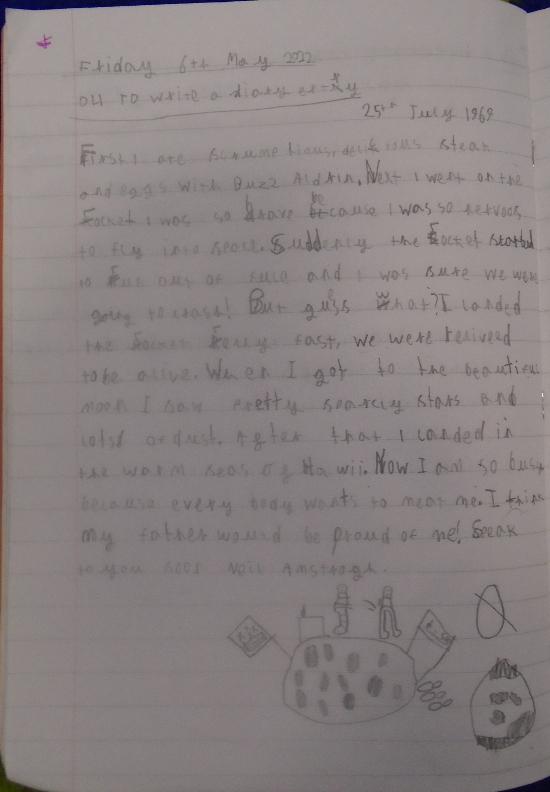 Friday 6th May 2022
OLI to write a diary entry
25th July 1969
First I ate scrume tious, delicious steak
and eggs with Buzz Aldrin. Next I went on the
Rocket I was so brave because I was so nervous
to fly into space. Suddenly the Rocket started
to run out of fule and I was sure we were
going to crash! But guss What? I landed
the Rocket Very fast, we were relived
to be alive. When I got to the beautiful
moon I saw pretty sparcly stars and
lots of dust. After that I landed in
the warm seas of Ha wii. Now I am so busy
because every body wants to meat me. I think
my father would be proud of me! Speak
to you soon Neil Amstrogh.